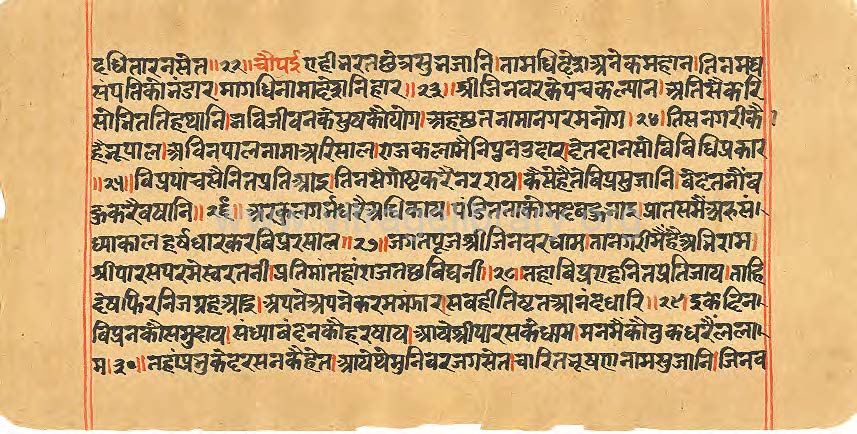 दधितारनसेत॥२२॥चौपई याहीभरतछेत्रसुभजानि।नामधिदेशअनेकमहान।तिनमध्य
संपतिकोभंडार।मागधिनामादेशनिहार॥२३॥श्रीजिनवरकेपंचकल्यान।अतिसैकरि
सोभिततिहथानि।भविजीवनकेपुण्यकौयोग।अहछतनामानगरमनोग।२४।तिसनगरीकौ
हैभूपाल।अविनपालनामाअरिसाल।राजकलामैनिपुनउदार।देनदानसोविविधिप्रकार
॥२५॥विप्रपाचसैनितप्रतिआइ।तिनसैगोष्टकरैनरराय।कैसेहैतेविप्रसुजानि।वेदवेदांग
कीकरैवषानि॥२६॥अरकुलगर्भधरैअधिकाय।पंडितताकौमदवहुभाइ।प्रातसमैअरुसं
ध्याकाल।हर्षधारकरविप्ररसाल॥२७॥जगतपूजश्रीजिनवरधाम।तानगरीमैहैअभिराम
श्रीपारसपरमेस्वरतनी।प्रतिमातहांराजतछविघनी॥२८॥तहाविप्रगहनितप्रतिजाय।ताहि
देषफिरिनिजग्रहआइ।अपनेअपनेकरममंझार।सबहीतिष्टतआनंदधारि॥२९॥इकदिन
विप्रनकौसमुदाय।संध्यावंदनकौहरषाय।आयेश्रीपारसकेधाम।मनमैकौतुकधरैंलला
म।३०॥तहांप्रभुकेदरसनकैहेत।आयेथेमुनिवरजगसेत।चारितभूषणनामसुजानि।जिनव